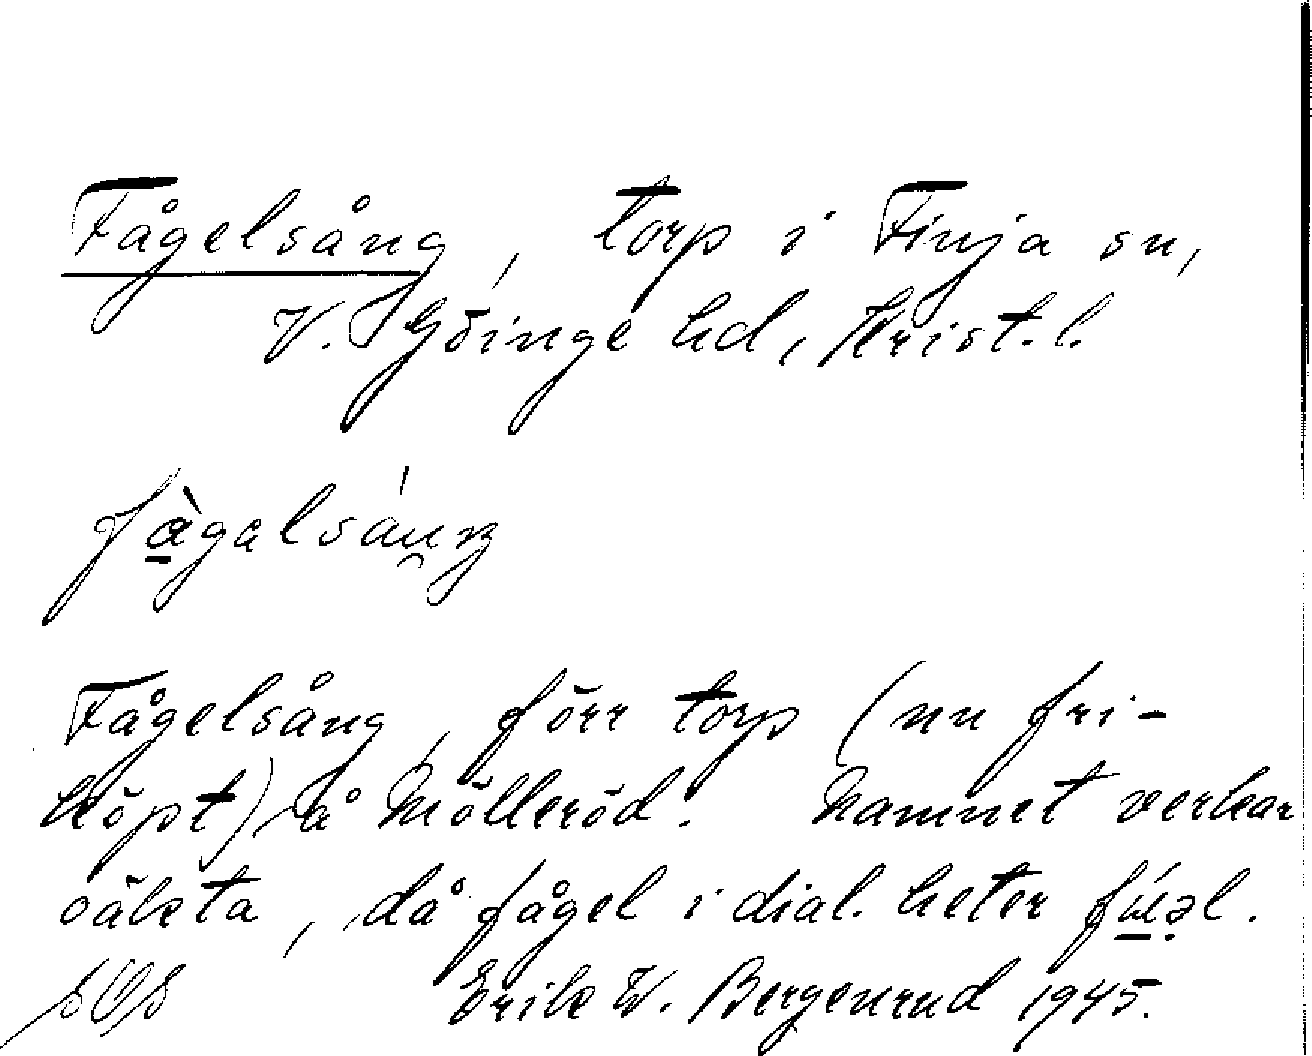 Fågelsång, torp i Finja sn,
V. Göinge hd, Krist. l.
Fågelsång, förr torp (nu fri-
köpt) å Mölleröd. Namnet verkar
oäkta, då fågel i dial. heter fúəl.
Erik W. Bergenrud 1945.